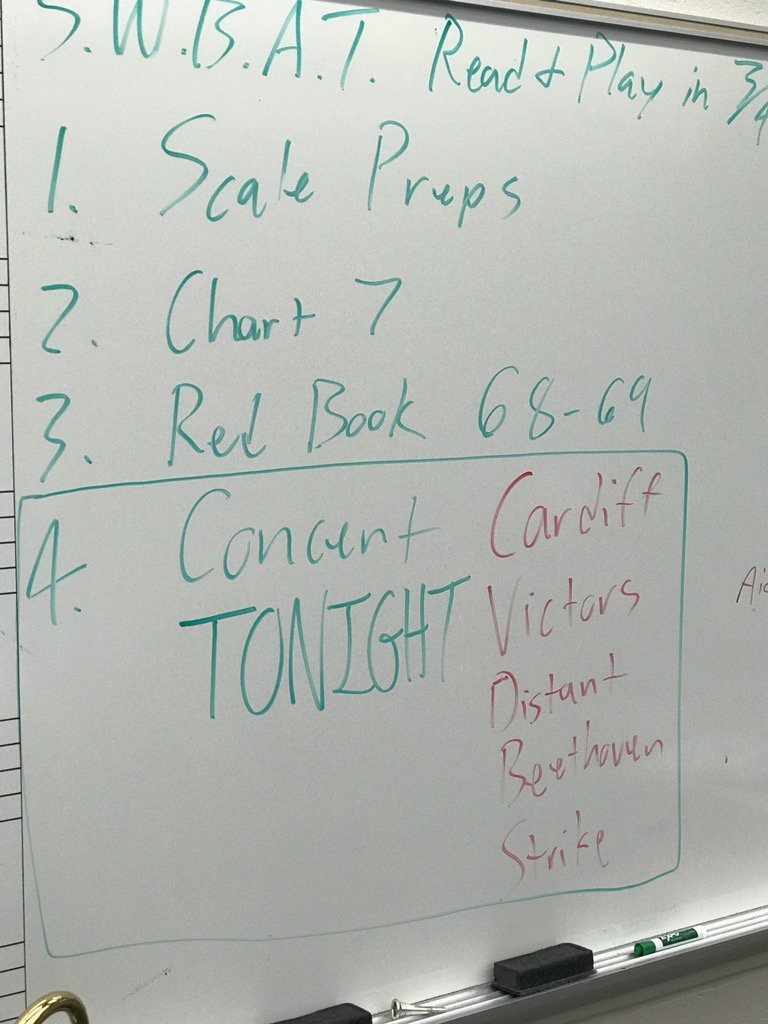 S.W.B.A.T. Read & Play in 3/4
1. Scale Preps
2. Chart 7
3. Red Book 68-69
4. Concert
TONIGHT
Cardiff
Victors
Distant
Beethoven
Strike
EXPO